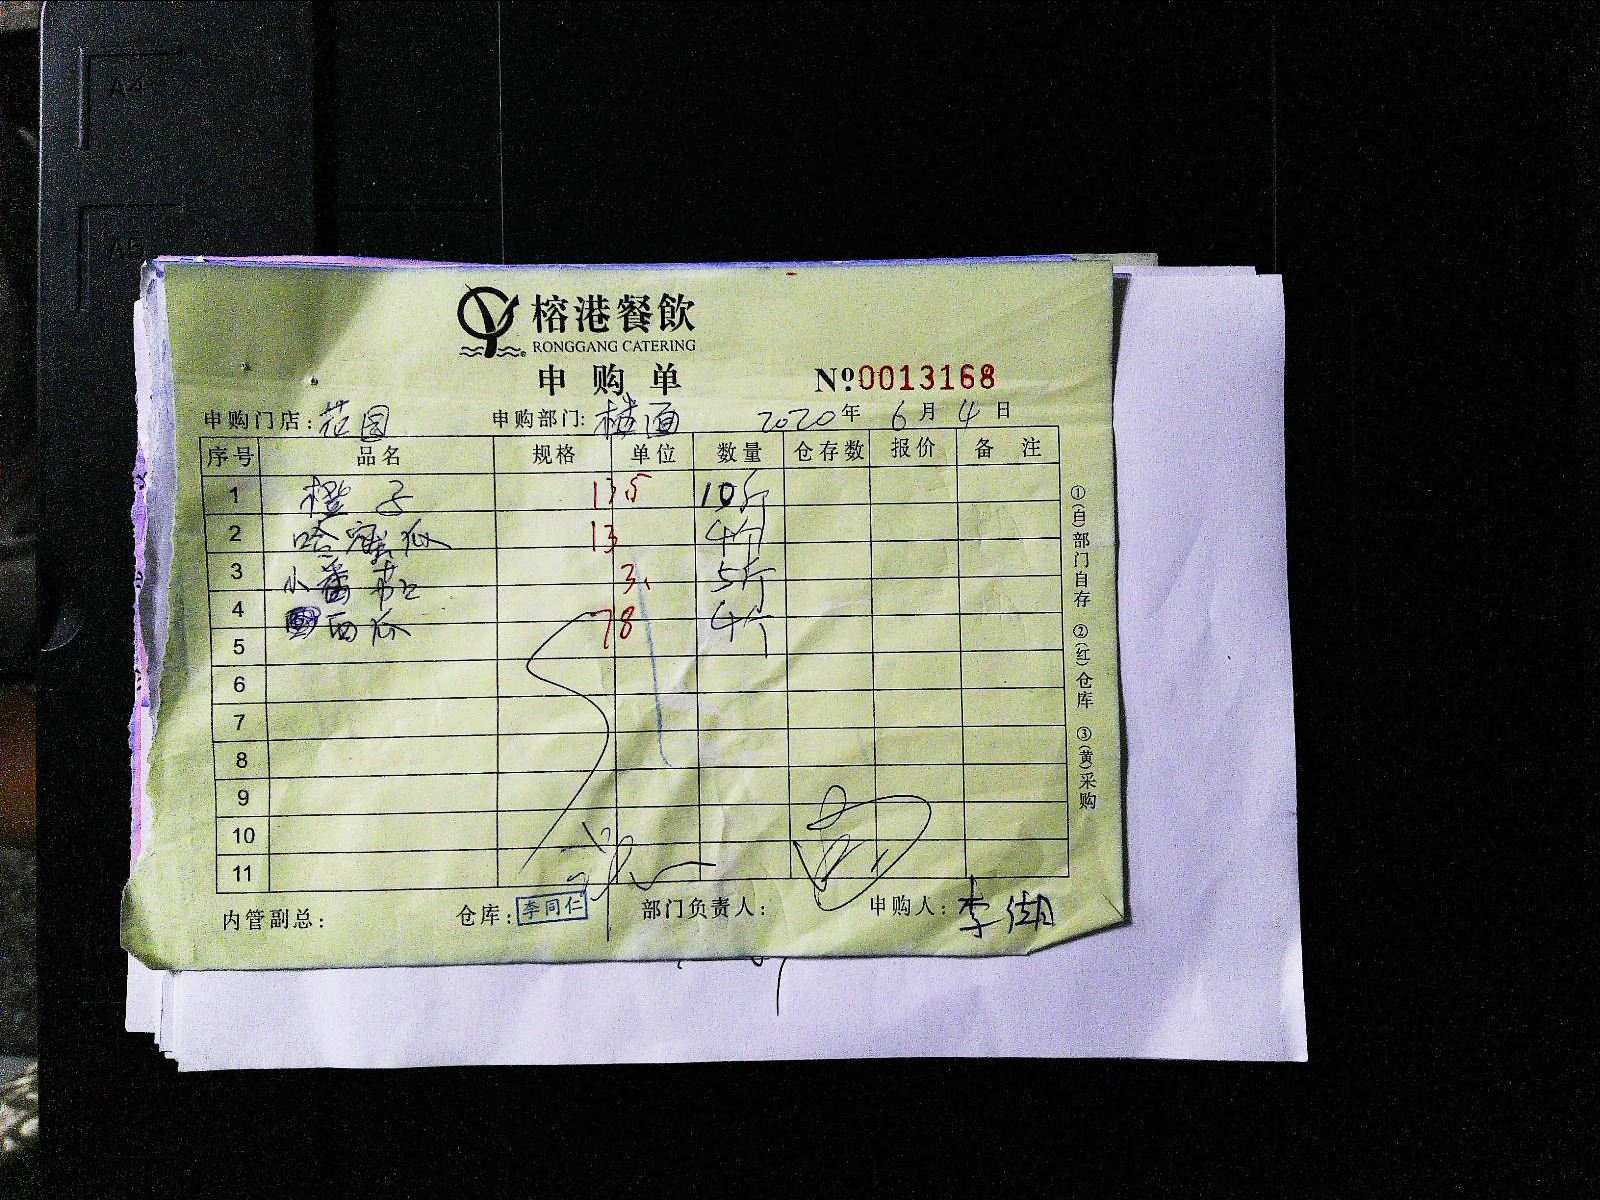 A4
A5
榕港餐飲
RONGGANG CATERING
申购单
№0013168
申购门店:花园 申购部门:楼面 2020年6月4日
序号 品名 规格 单位 数量 仓存数 报价 备注
1 橙子 135 10斤
2 哈蜜瓜 13 4个
3 小番茄 3、 5斤
4 西瓜 78 4个
5
6
7
8
9
10
11
①(自)部门自存 ②(红)仓库 ③(黄)采购
内管副总: 仓库:李同仁 部门负责人: 申购人:李